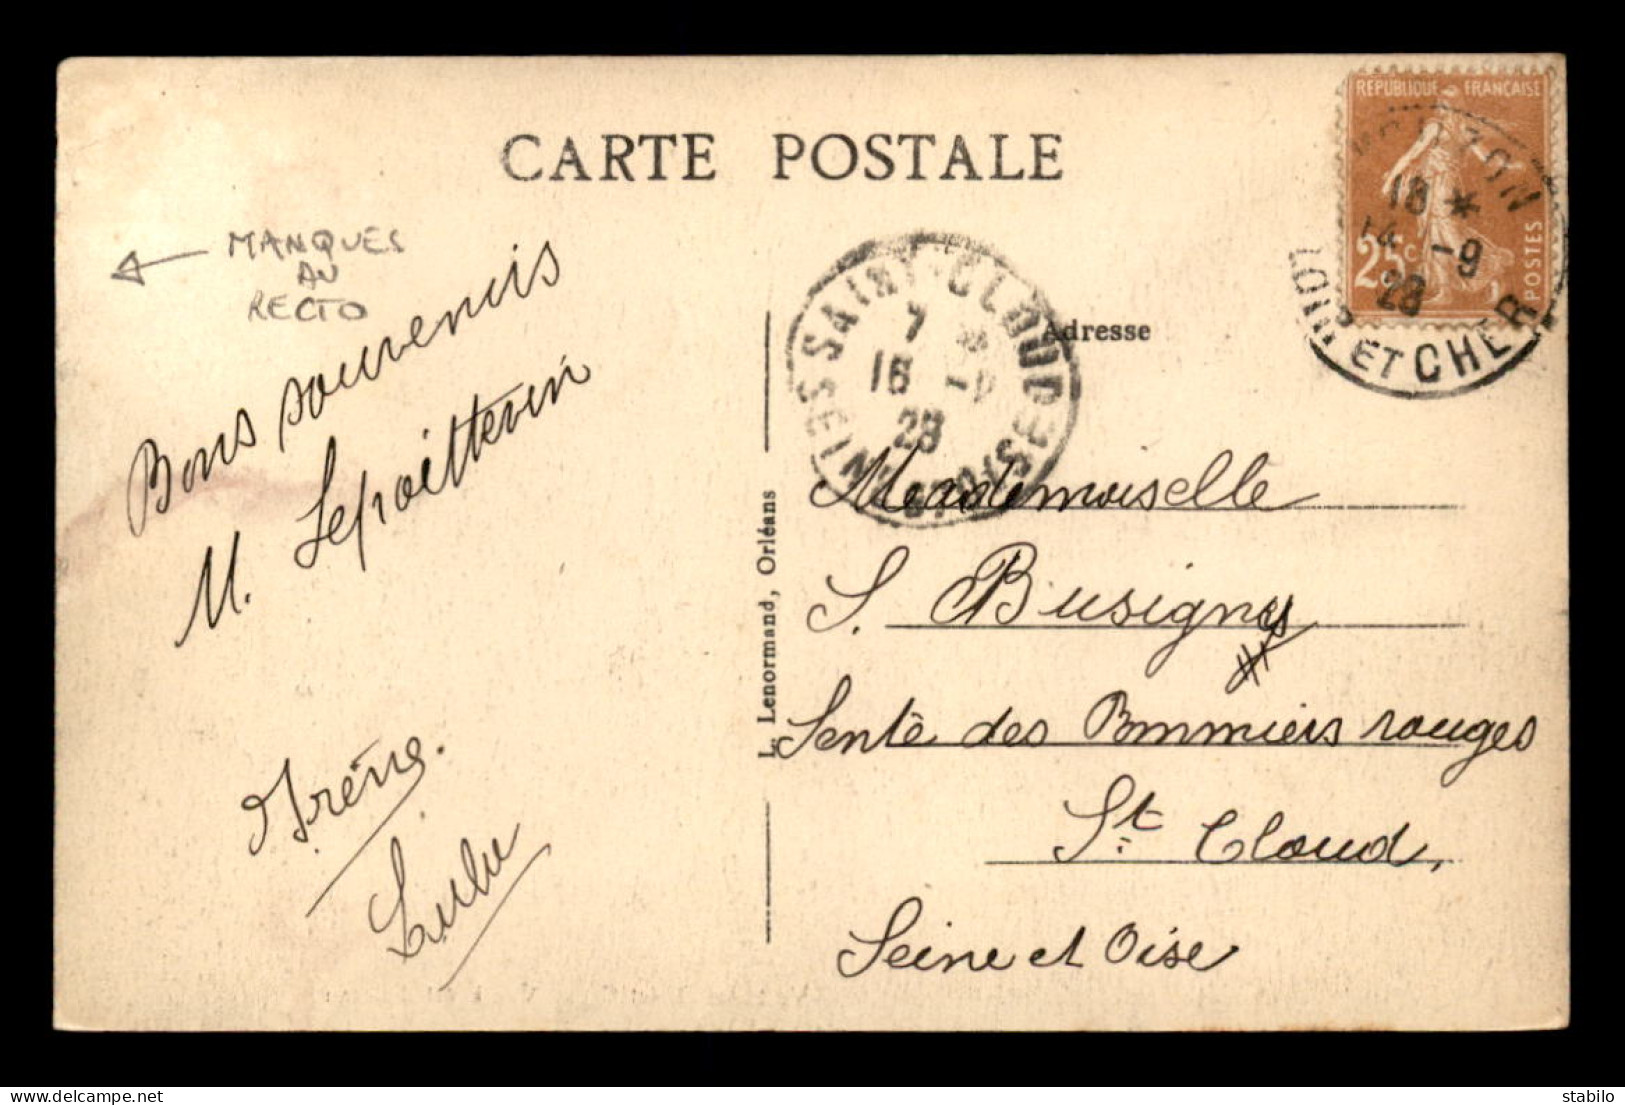 CARTE POSTALE
RÉPUBLIQUE FRANÇAISE
25c
POSTES
18 *
14 -9
28
LOIR ET CHER
MANQUES
AU
RECTO
Bons souvenirs
M. Lepoittevin
Irène.
Lulu
L. Lenormand, Orléans
SAINT-CLOUD
7
16
28
SEINE ET OISE
Adresse
Mademoiselle
S. Busigny
Sente des Pommiers rouges
St Cloud,
Seine et Oise
delcampe.net
stabilo